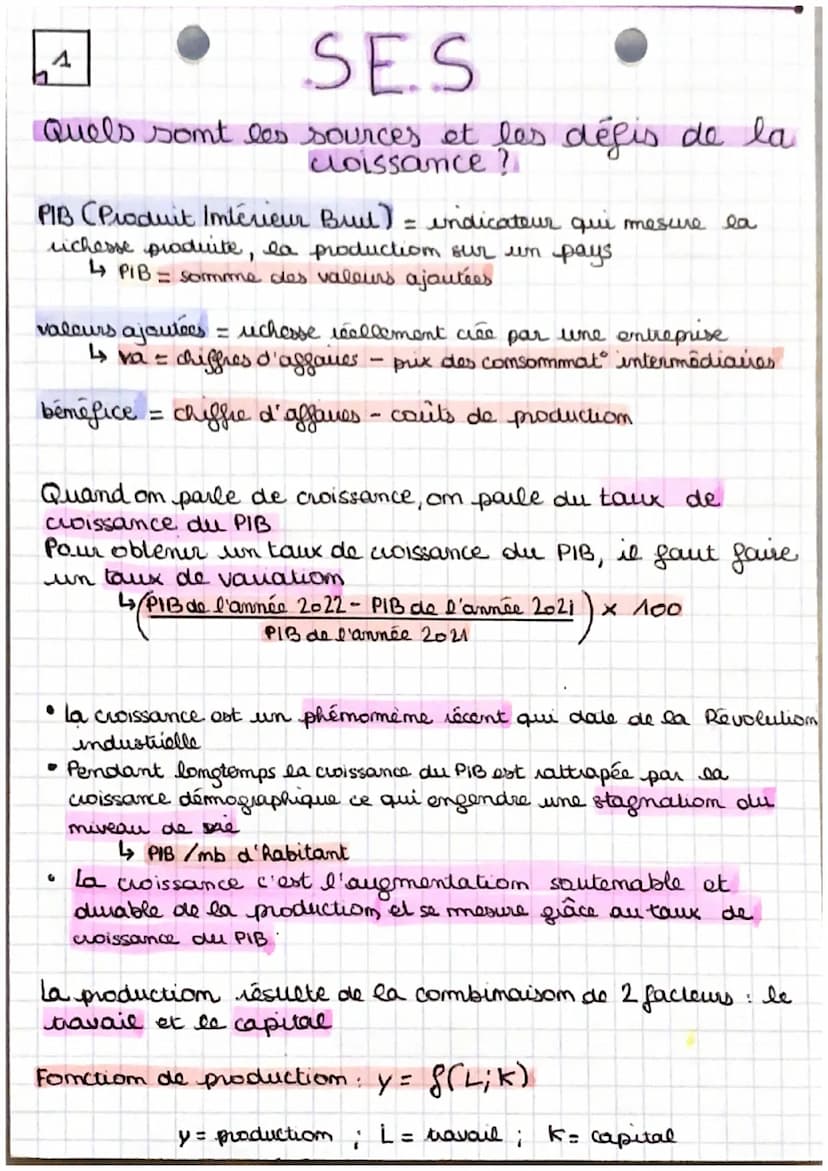 1
SES
Quels sont les sources et les défis de la
croissance ?
PIB (Produit Intérieur Brut) = indicateur qui mesure la
richesse produite, la production sur un pays
↳ PIB = somme des valeurs ajoutées
valeurs ajoutées = richesse réellement créé par une entreprise
↳ va = chiffres d'affaires - prix des consommat° intermédiaires
bénéfice = chiffre d'affaires - coûts de production
Quand on parle de croissance, on parle du taux de
croissance du PIB
Pour obtenir un taux de croissance du PIB, il faut faire
un taux de variation
↳ (PIB de l'année 2022 - PIB de l'année 2021) x 100
PIB de l'année 2021
• La croissance est un phénomème récent qui date de la Révolution
industrielle
• Pendant longtemps la croissance du PIB est rattrapée par la
croissance démographique ce qui engendre une stagnation du
niveau de vie
↳ PIB /nb d'habitant
• La croissance c'est l'augmentation soutenable et
durable de la production, et se mesure grâce au taux de
croissance du PIB.
La production résulte de la combinaison de 2 facteurs : le
travail et le capital
Fonction de production : y = f(L;K)
y = production ; L = travail ; K = capital